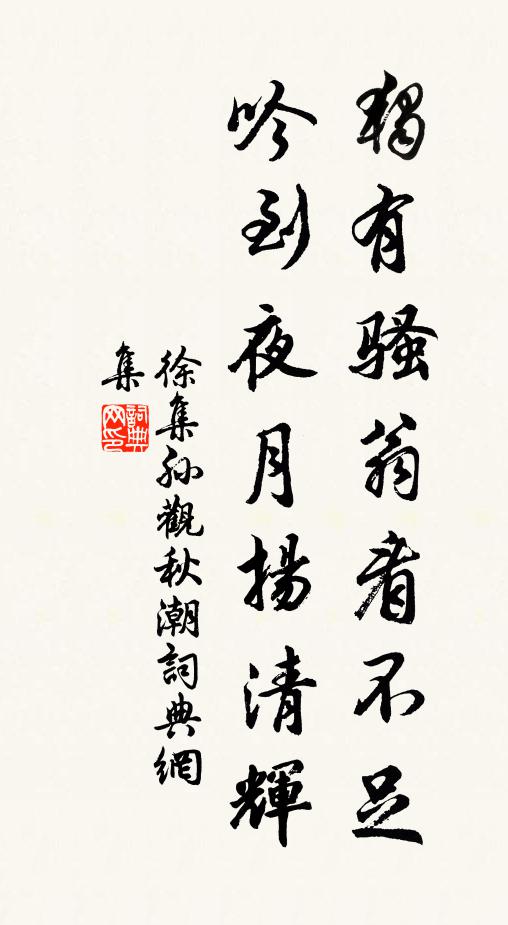 獨有騷翁看不足
吟到夜月揚清輝
徐集孙觀秋潮詞典網
集
詞典網印